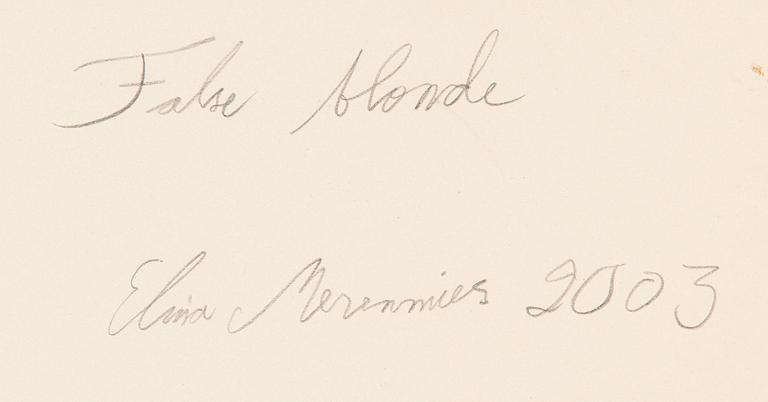 False blonde
Elina Merenmies 2003